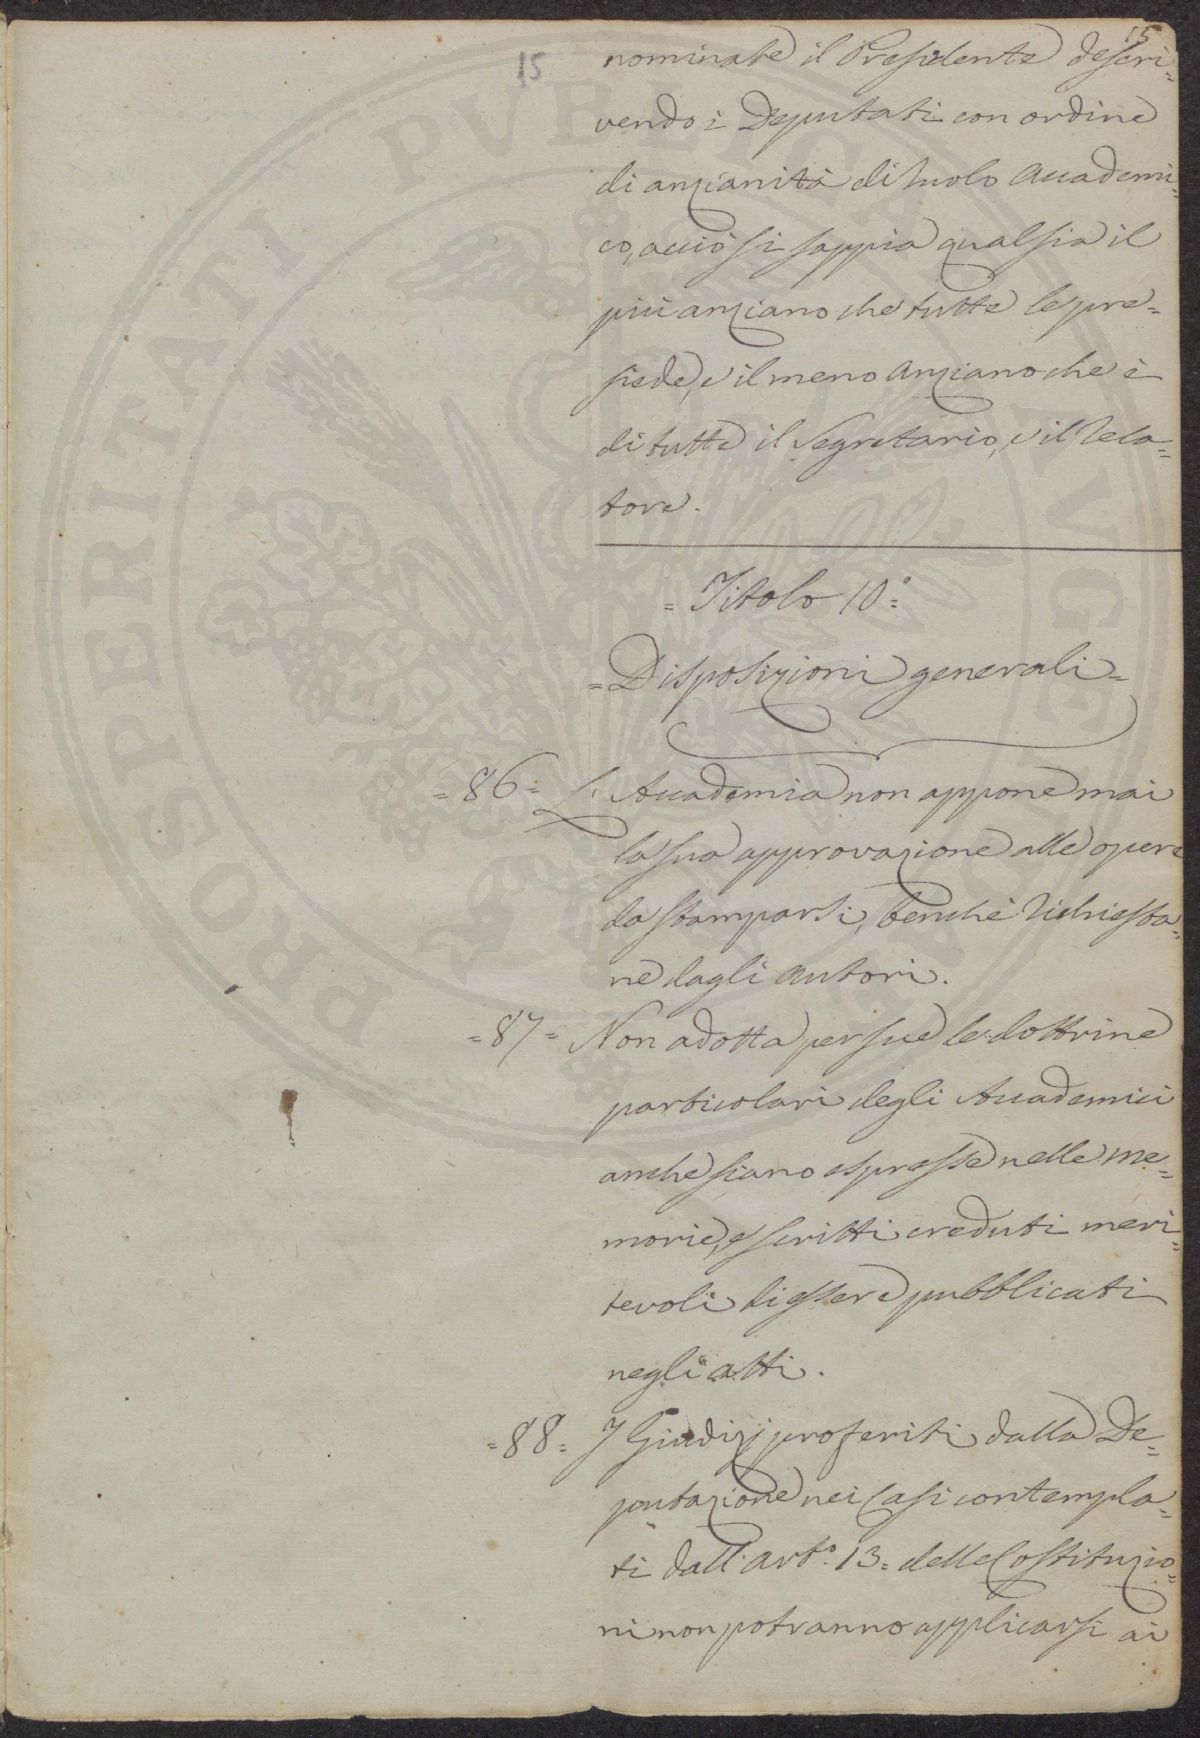 15
15
nominate il Presidente descri=
vendo i Deputati con ordine
di anzianità di ruolo Accademi=
co, acciò si sappia qual sia il
più anziano che tutte le pre=
siede, e il meno anziano che è
di tutte il Segretario, e il Rela=
tore.
= Titolo 10°=
= Disposizioni generali =
=86= L'Accademia non appone mai
la sua approvazione alle opere
da stamparsi, benchè richiesta=
ne dagli autori.
=87= Non adotta per sue le dottrine
particolari degli Accademici
anche siano espresse nelle me=
morie, e scritti creduti meri=
tevoli di essere pubblicati
negli atti.
=88= I Giudizj proferiti dalla De=
putazione nei Casi contempla=
ti dall'art.° 13= delle Costituzio=
ni non potranno applicarsi ai
PROSPERITATI PVBLICAE AVGENDAE